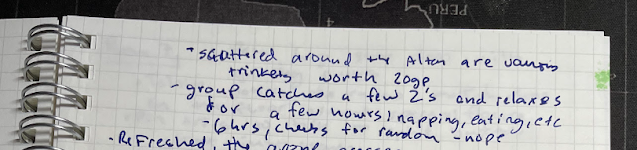 PERU
- scattered around the Altar are various
trinkets worth 20gp
- group catches a few Z's and relaxes
for a few hours, napping, eating, etc
- 6hrs, checks for random - nope
- Refreshed, the group